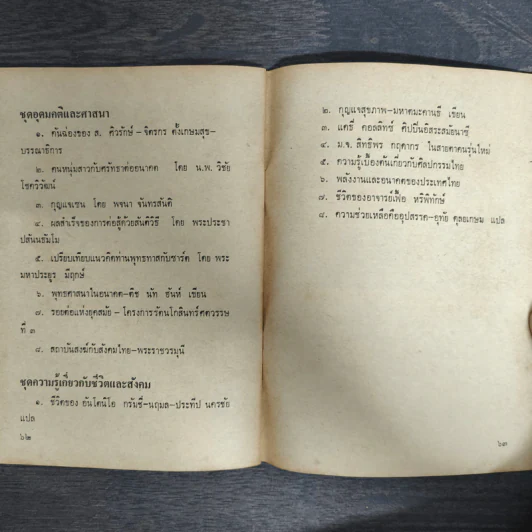 ชุดอุดมคติและศาสนา
๑. คันฉ่องของ ส. ศิวรักษ์ – จิตรกร ตั้งเกษมสุข–
บรรณาธิการ
๒. คนหนุ่มสาวกับศรัทธาต่ออนาคต โดย น.พ. วิชัย
โชควิวัฒน์
๓. กุญแจเซน โดย พจนา จันทรสันติ
๔. ผลสำเร็จของการต่อสู้ด้วยสันติวิธี โดย พระประชา
ปสันนธัมโม
๕. เปรียบเทียบแนวคิดท่านพุทธทาสกับซาร์ต โดย พระ
มหาประยูร มีฤกษ์
๖. พุทธศาสนาในอนาคต–ติช นัท ฮันห์ เขียน
๗. รอยต่อแห่งยุคสมัย – โครงการรัตนโกสินทร์ศตวรรษ
ที่ ๓
๘. สถาบันสงฆ์กับสังคมไทย–พระราชวรมุนี
ชุดความรู้เกี่ยวกับชีวิตและสังคม
๑. ชีวิตของ อันโตนิโอ กรัมซี่–นฤมล–ประทีป นครชัย
แปล
๖๒
๒. กุญแจสุขภาพ–มหาตมะคานธี เขียน
๓. แคธี่ คอลลิทซ์ ศิปปินอิสระสมัยนาซี
๔. ม.จ. สิทธิพร กฤดากร ในสายตาคนรุ่นใหม่
๕. ความรู้เบื้องต้นเกี่ยวกับศิลปกรรมไทย
๖. พลังงานและอนาคตของประเทศไทย
๗. ชีวิตของอาจารย์เฟื้อ หริพิทักษ์
๘. ความช่วยเหลือคืออุปสรรค–อุทัย ดุลยเกษม แปล
๖๓